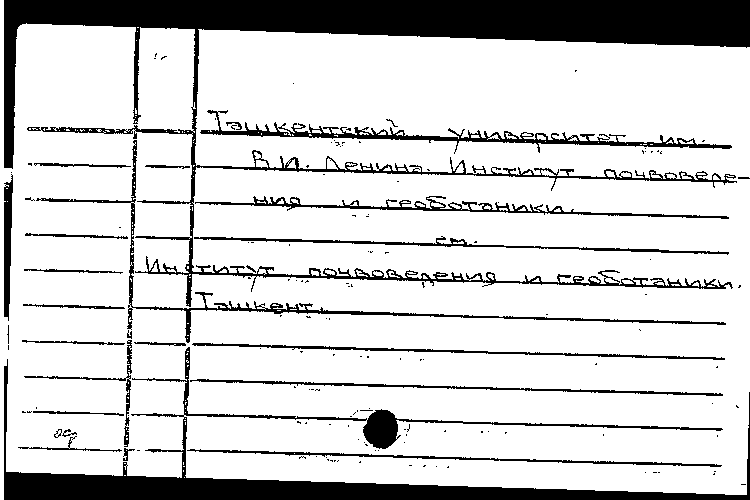 Ташкентский университет им.
В.И. Ленина. Институт почвоведе-
ния и геоботаники.
см.
Институт почвоведения и геоботаники.
Ташкент.